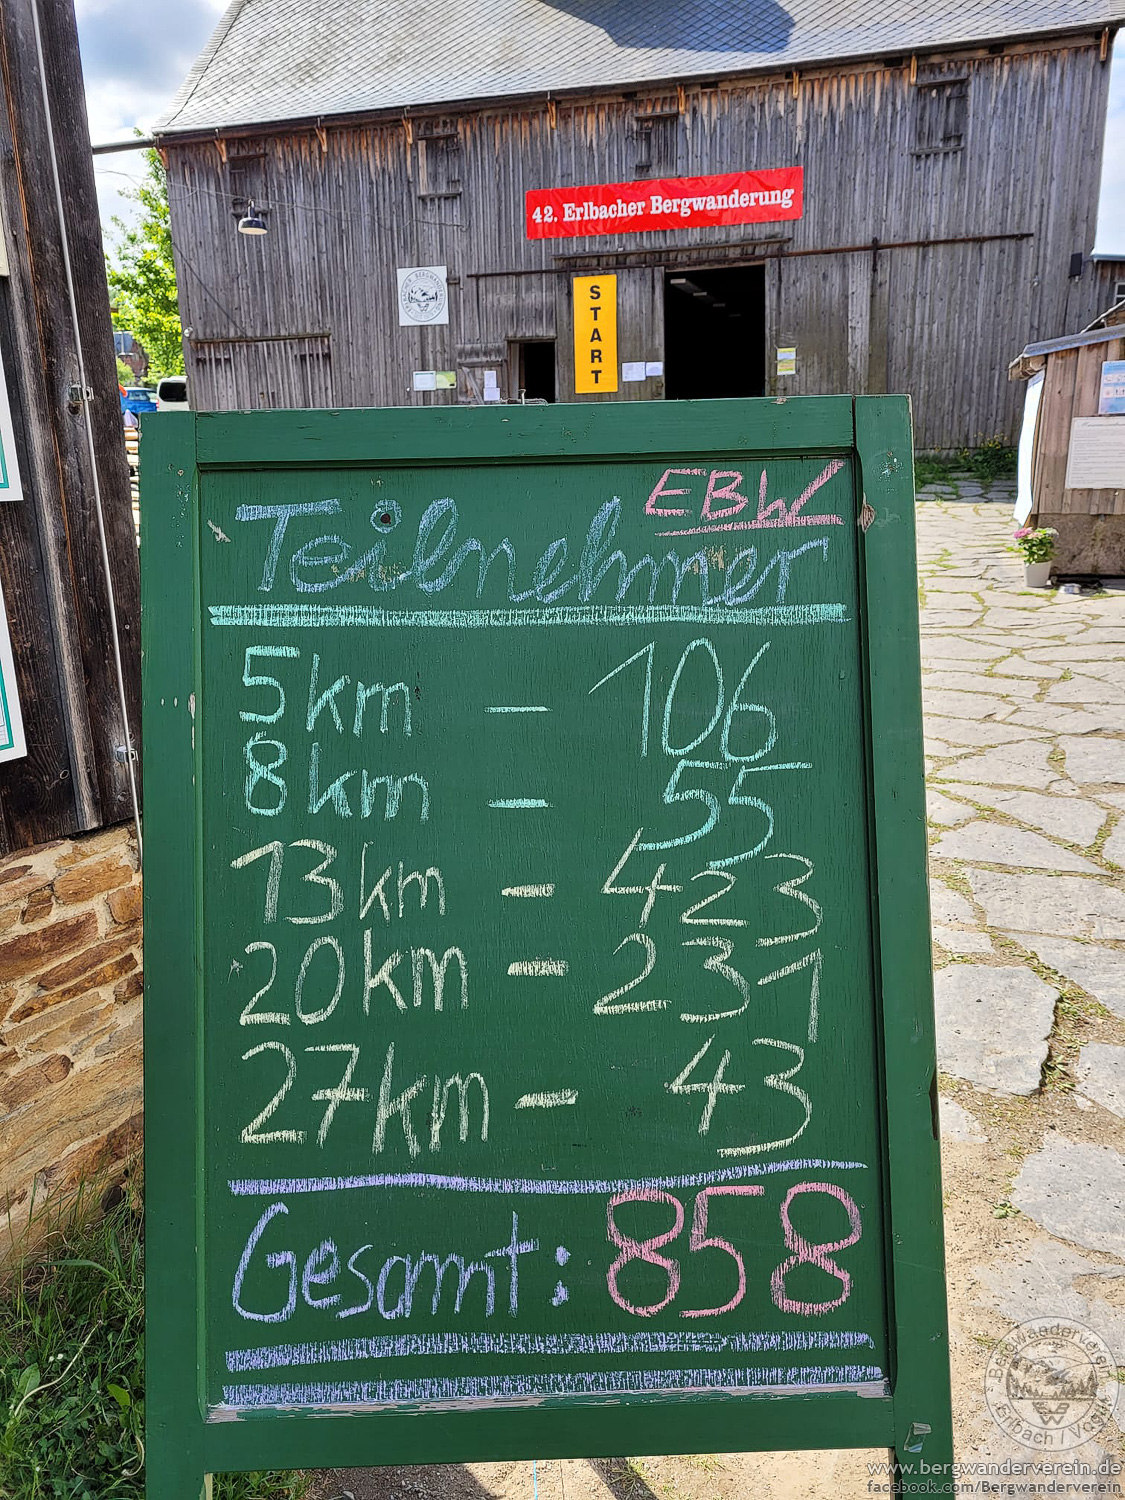 42. Erlbacher Bergwanderung
START
EBW
Teilnehmer
5km – 106
8km – 55
13km – 423
20km – 231
27km – 43
Gesamt: 858
Bergwanderverein
Erlbach / Vogtl.
www.bergwanderverein.de
facebook.com/Bergwanderverein